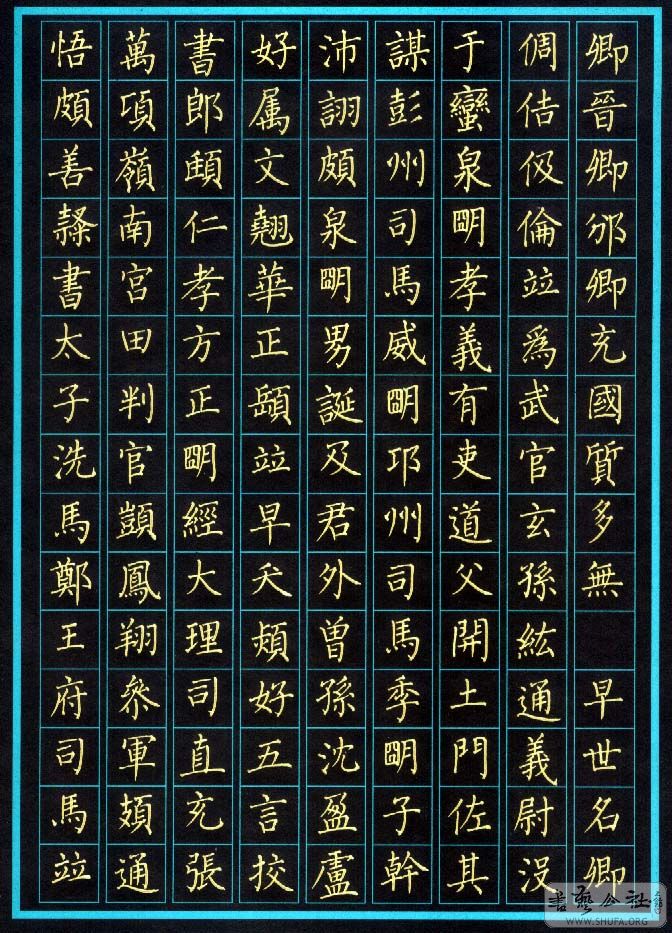 卿晉卿邠卿充國質多無 早世名卿
倜佶伋倫竝為武官玄孫紘通義尉沒
于蠻泉明孝義有吏道父開土門佐其
謀彭州司馬威明邛州司馬季明子幹
沛詡頗泉明男誕及君外曾孫沈盈盧
好属文翹華正頤竝早夭熲好五言挍
書郎頲仁孝方正明經大理司直充張
萬頃嶺南宫田判官顗鳳翔參軍頗通
悟頗善隸書太子洗馬鄭王府司馬竝
書藝公社
WWW.SHUFA.ORG